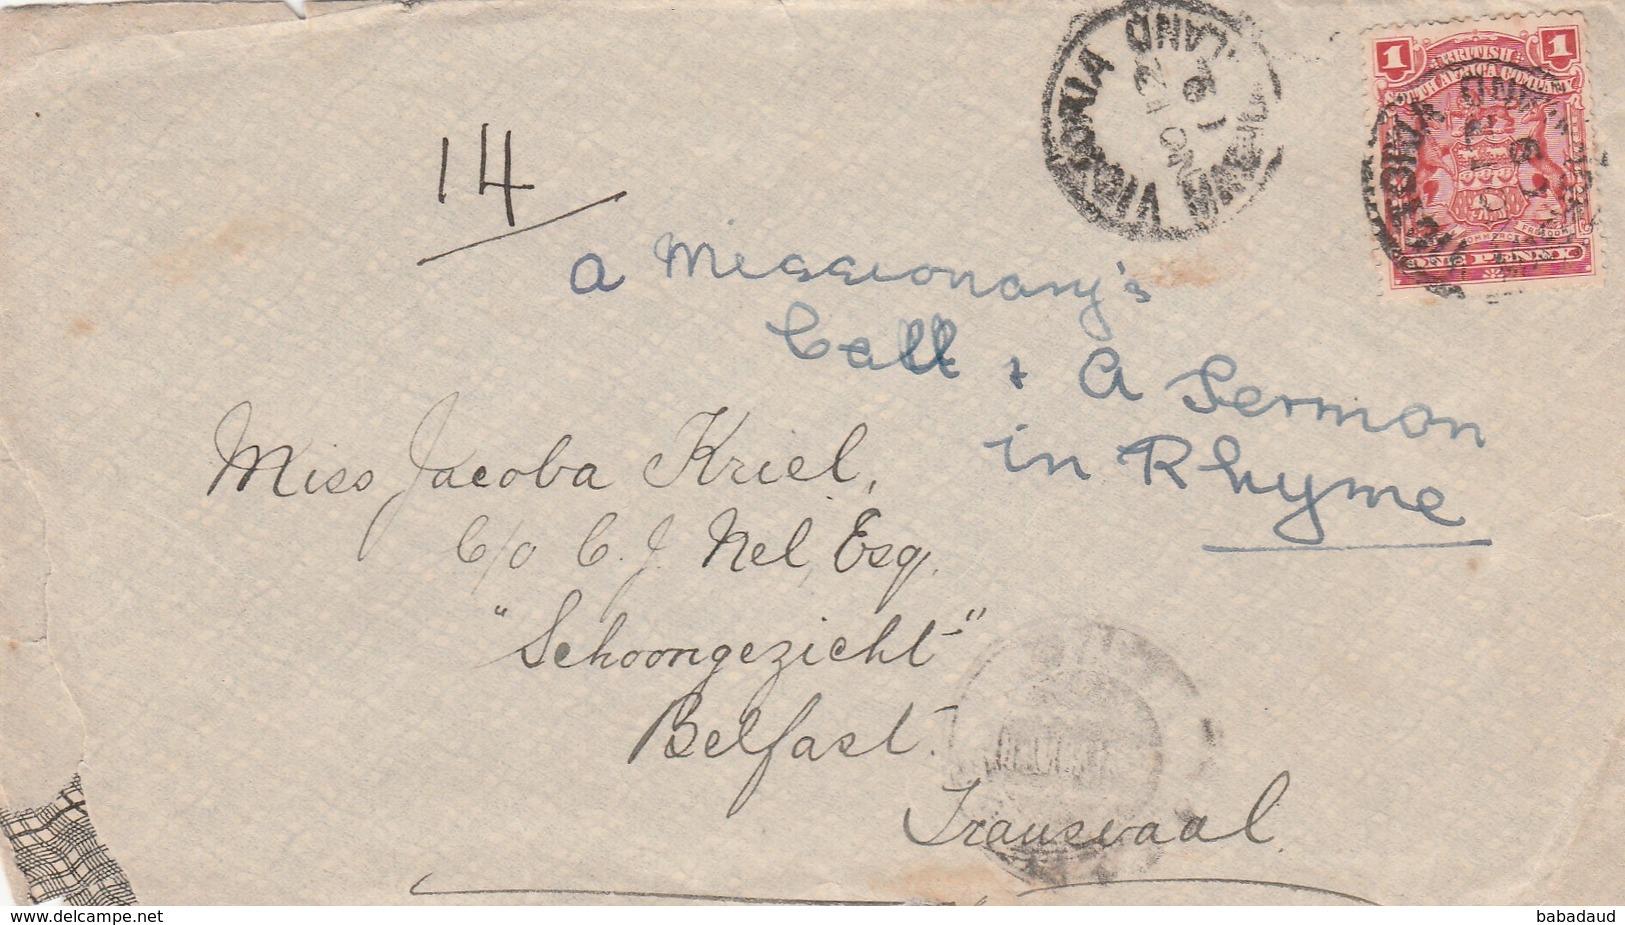 1 1
BRITISH
SOUTH AFRICA COMPANY
COMMERCE FREEDOM
ONE PENNY
VICTORIA
14
a Missionary's
Call + A Sermon
in Rhyme
Miss Jacoba Kriel,
C/o C. J. Nel, Esq.
"Schoongezicht"
Belfast.
Transvaal.
www.delcampe.net
babadaud